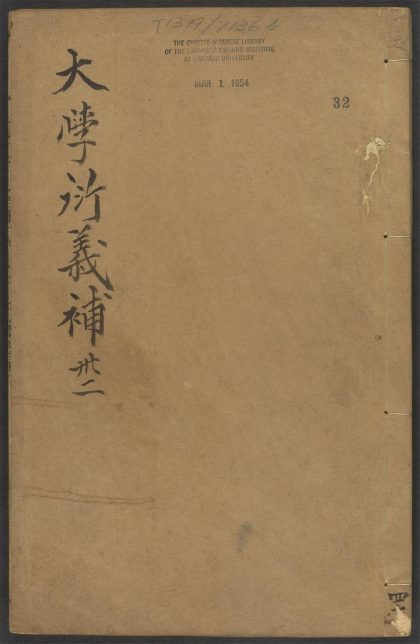 T1319/7136 b
THE CHINESE-JAPANESE LIBRARY
OF THE HARVARD-YENCHING INSTITUTE
AT HARVARD UNIVERSITY
MAR 1 1954
32
大學衍義補 卅二